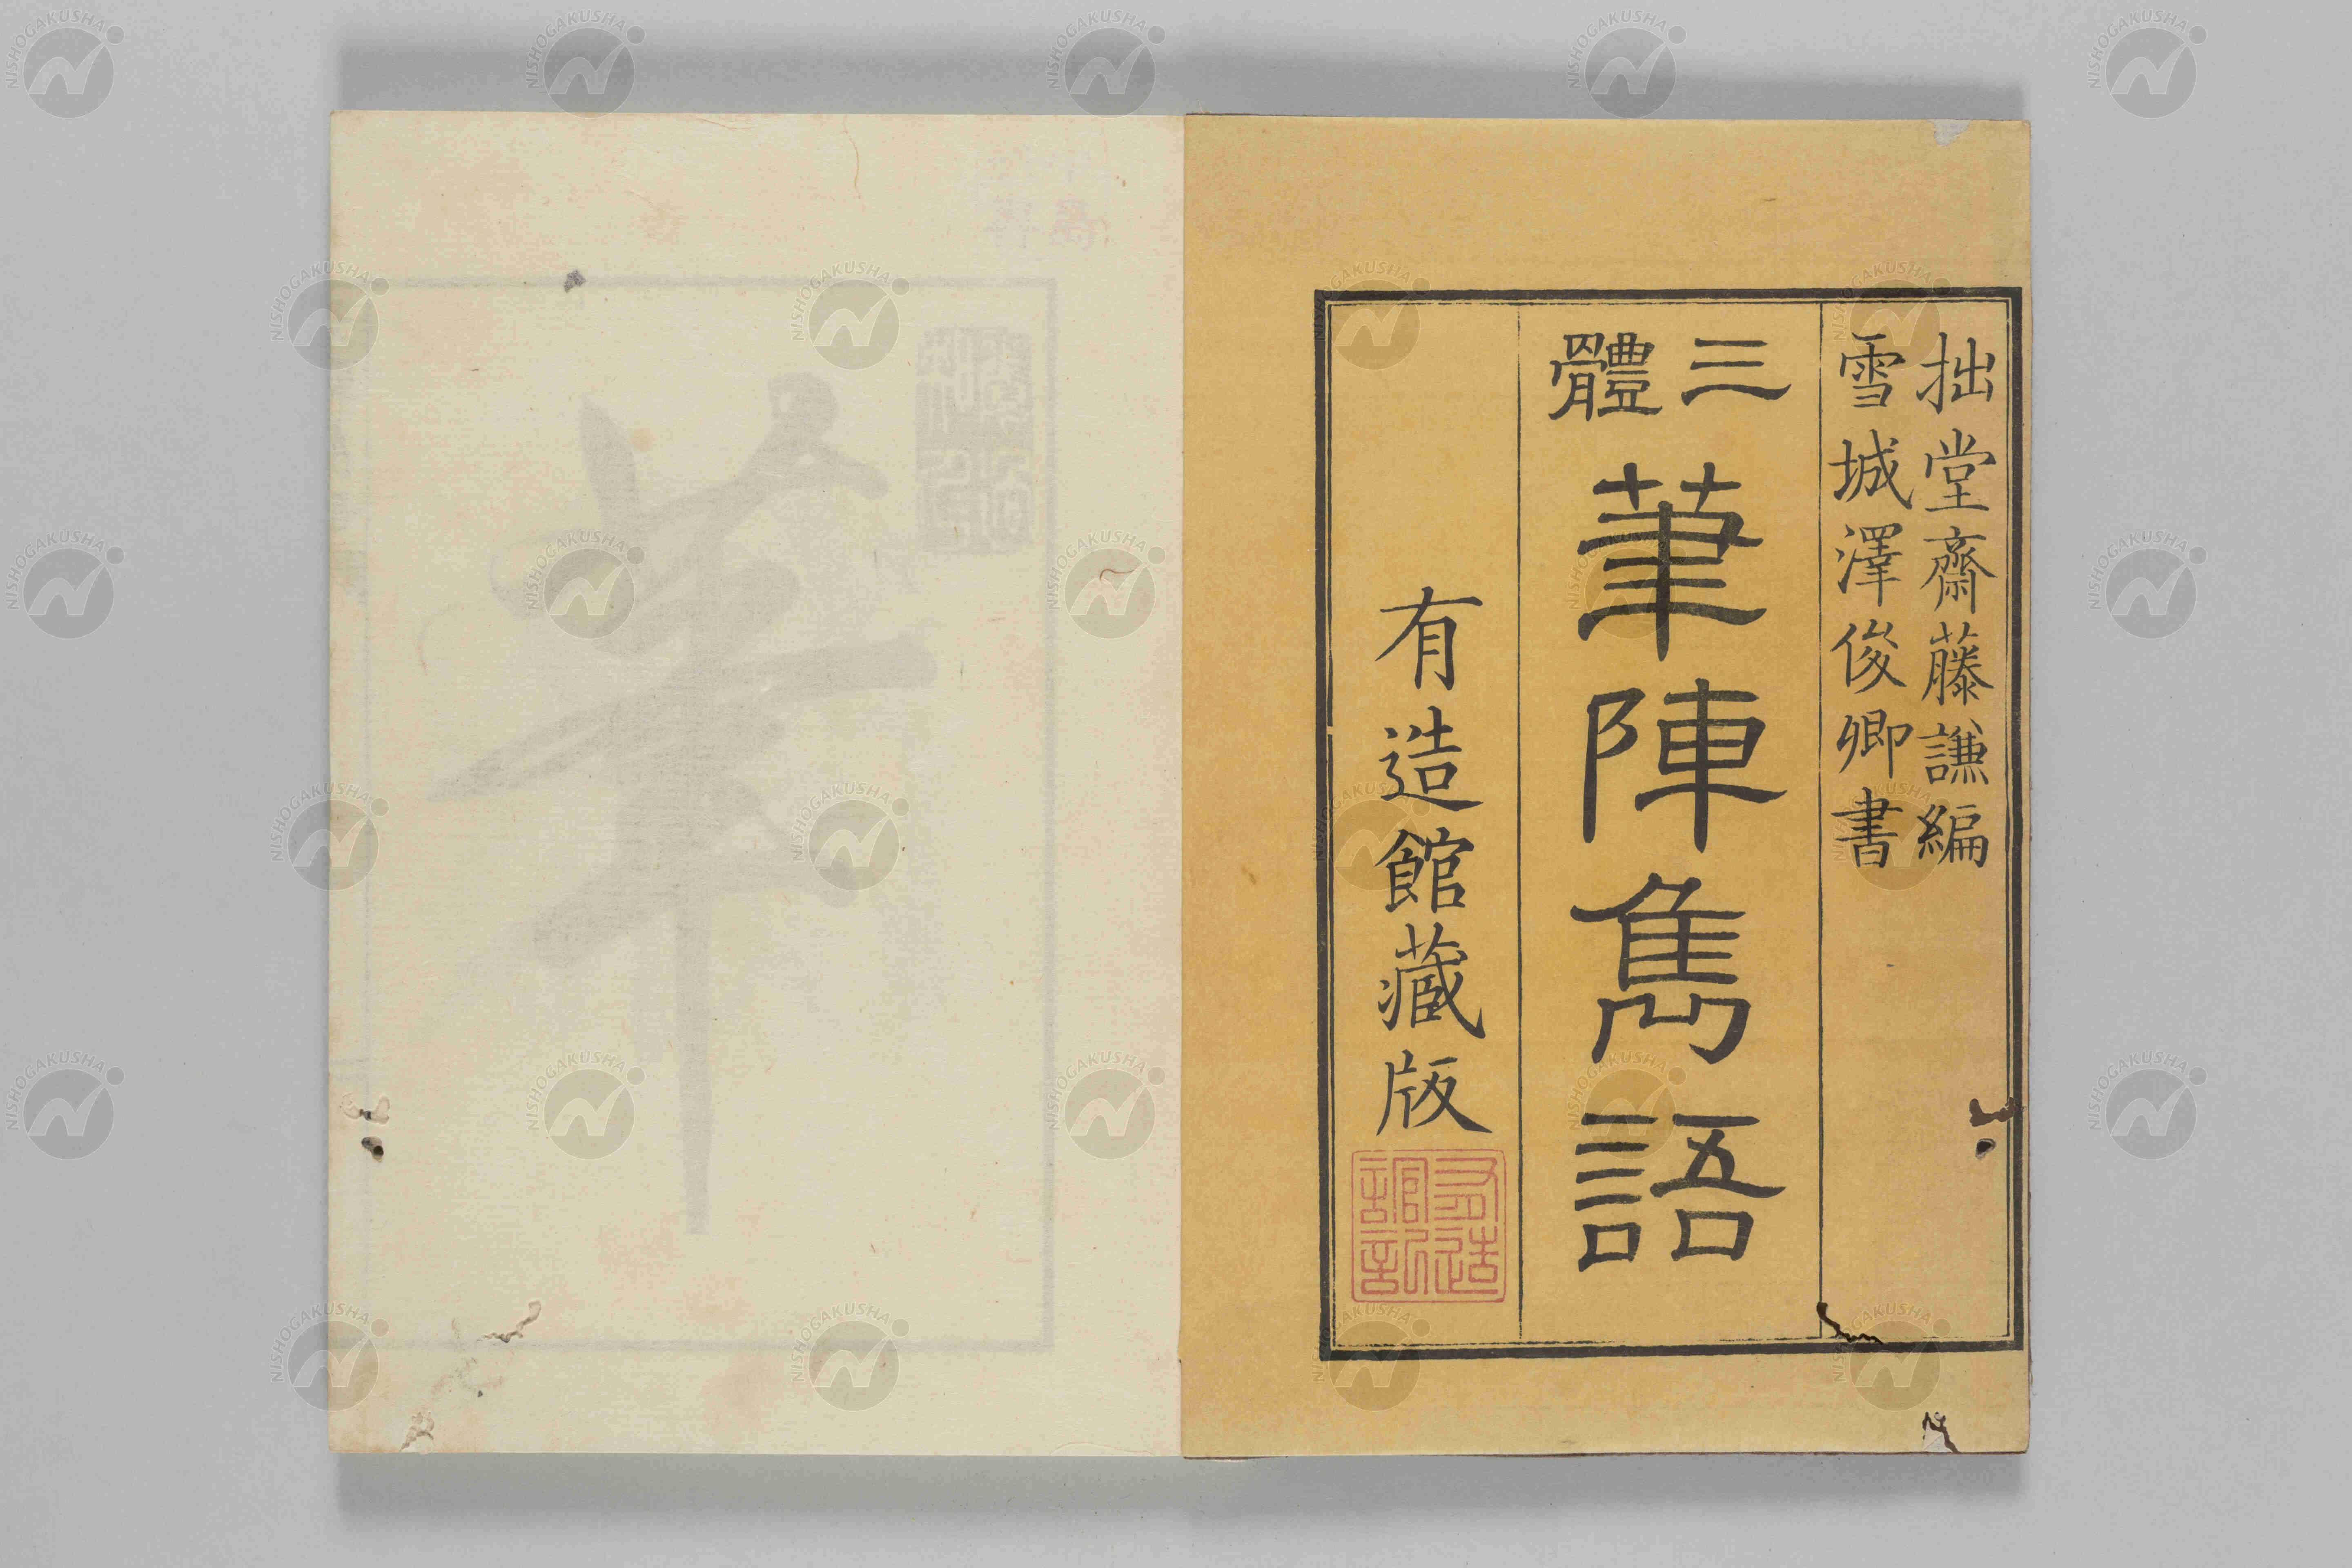 拙堂齋藤謙編
雪城澤俊卿書
三體
筆陣雋語
有造館藏版
NISHOGAKUSHA